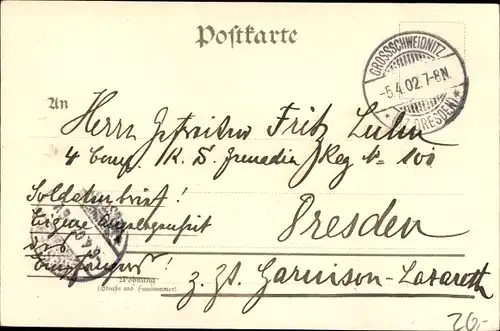 Postkarte
GROSSSCHWEIDNITZ
-5.4.02.7-8N.
* (BZ. DRESDEN) *
An
Herrn Gefreiten Fritz Luhn
4 Comp. K. S. Grenadier Reg No 100
Soldatenbrief!
Eigene Angelegenheit
des
Empfängers!
Dresden
z. Zt. Garnison-Lazareth
Wohnung
(Straße und Hausnummer)
20,-